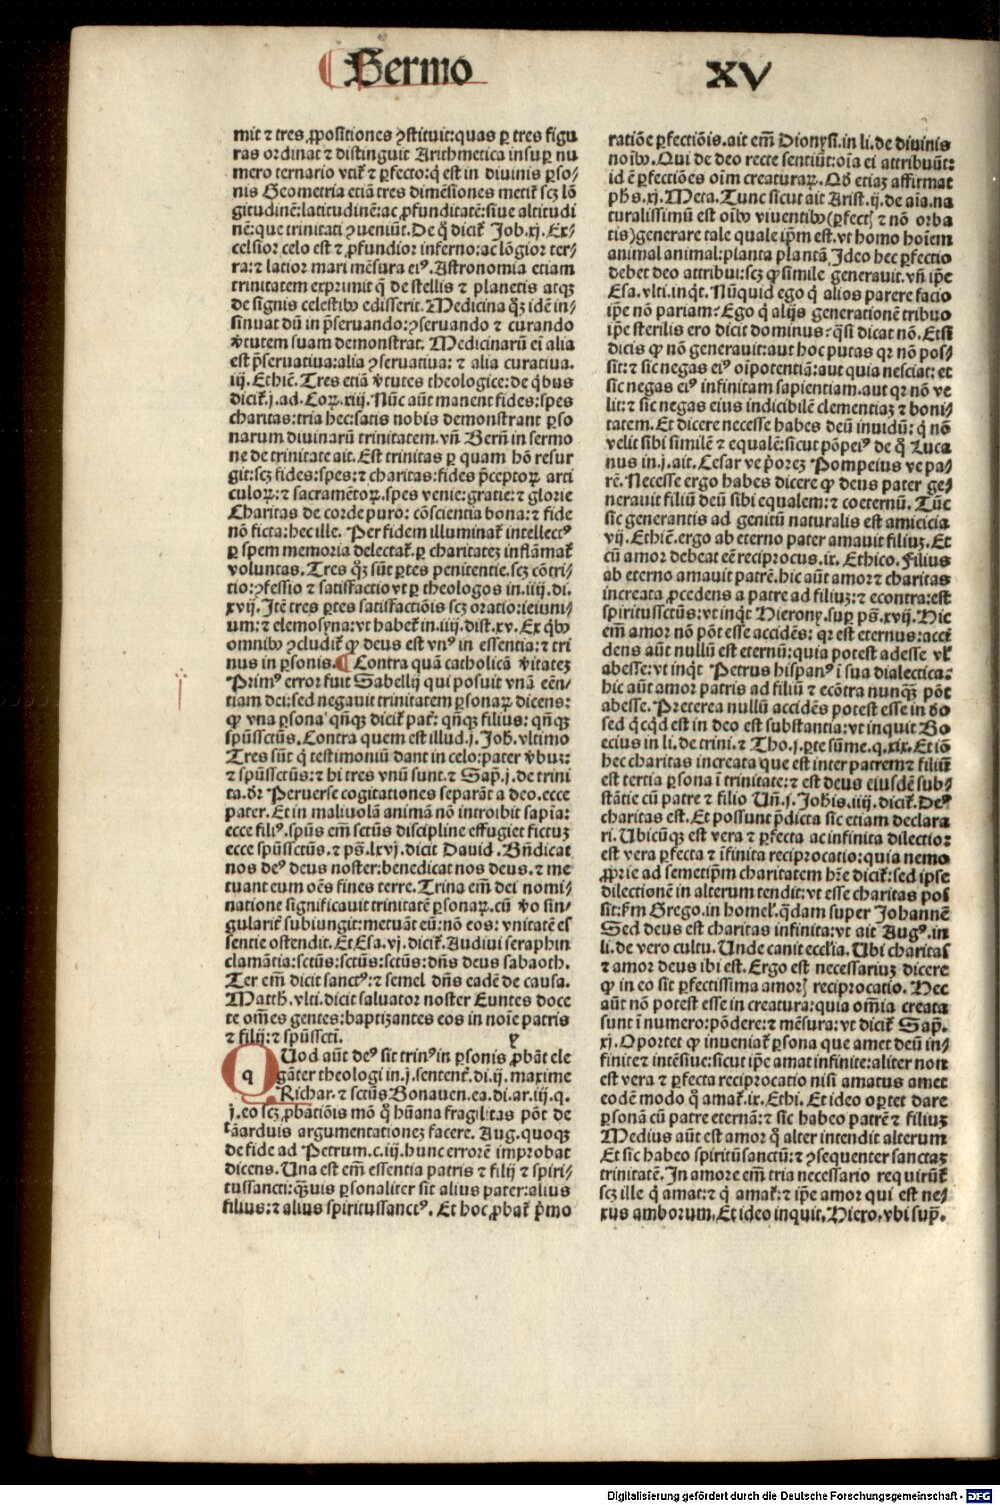 Sermo XV
mit ⁊ tres ꝓpositiones ꝯstituit: quas ꝑ tres figu
ras ordinat ⁊ distinguit Arithmetica insuꝑ nu
mero ternario vtit᷑ ⁊ ꝑfecto: qͥ est in diuinis ꝑso⸗
nis Geometria etiā tres dimēsiones metit᷑ scꝫ lō
gitudinē: latitudinē: ac ꝓfunditatē: siue altitudi
nē: que trinitati ꝯueniūt. De q̄ dicit᷑ Job. xj. Ex⸗
celsior celo est ⁊ ꝓfundior inferno: ac lōgior ter⸗
ra: ⁊ latior mari mēsura eiꝰ. Astronomia etiam
trinitatem exprimit q̄ de stellis ⁊ planetis atqꝫ
de signis celestibꝰ edisserit. Medicina qꝫ idē in⸗
sinuat dū in p̄seruando: ꝯseruando ⁊ curando
v̄tutem suam demonstrat. Medicinarū eī alia
est p̄seruatiua: alia ꝯseruatiua: ⁊ alia curatiua.
iij. Ethic̄. Tres etiā v̄tutes theologice: de qͥbus
dicit᷑. j. ad. Coꝝ. xiij. Nūc aūt manent fides: spes
charitas: tria hec: satis nobis demonstrant ꝑso
narum diuinarū trinitatem. vn̄ Bern̄ in sermo
ne de trinitate ait. Est trinitas ꝑ quam hō resur
git: scꝫ fides: spes: ⁊ charitas: fides p̄ceptoꝝ arti
culoꝝ: ⁊ sacramētoꝝ. spes venie: gratie: ⁊ glorie
Charitas de corde puro: cōscientia bona: ⁊ fide
nō ficta: hec ille. Per fidem illuminat᷑ intellectꝰ
ꝑ spem memoria delectat᷑. ꝑ charitatez inflāmat᷑
voluntas. Tres qꝫ sūt ꝑtes penitentie. scꝫ cōtri⸗
tio: ꝯfessio ⁊ satisfactio vt ꝑ theologos in. iiij. di.
xvij. Itē tres ꝑtes satisfactiōis scꝫ oratio: ieiuni⸗
um: ⁊ elemosyna: vt habet᷑ in. iiij. dist. xv. Ex qͥbꝰ
omnibꝰ ꝯcludit᷑ ꝙ deus est vnꝰ in essentia: ⁊ tri
nus in ꝑsonis. ¶ Contra quā catholicā v̄itatez
Primꝰ error fuit Sabellij qui posuit vnā eēn⸗
tiam dei: sed negauit trinitatem ꝑsonaꝝ dicens:
ꝙ vna ꝑsona qn̄qꝫ dicit᷑ pat᷑: qn̄qꝫ filius: qn̄qꝫ
spūssctūs. Contra quem est illud. j. Joh̄. vltimo
Tres sūt q̄ testimoniū dant in celo: pater v̄buz:
⁊ spūssctūs: ⁊ hi tres vnū sunt. ⁊ Sap̄. j. de trini
ta. dr̄ Peruerse cogitationes separāt a deo. ecce
pater. Et in maliuolā animā nō introibit sapīa:
ecce filiꝰ. spūs em̄ sctūs discipline effugiet fictuz
ecce spūssctūs. ⁊ ps̄. lxvj. dicit Dauid. Bn̄dicat
nos deꝰ deus noster: benedicat nos deus. ⁊ me
tuant eum oēs fines terre. Trina em̄ dei nomi⸗
natione significauit trinitatē ꝑsonaꝝ. cū v̄o sin⸗
gularit᷑ subiungit: metuāt eū: nō eos: vnitatē es
sentie ostendit. Et Esa. vj. dicit᷑. Audiui seraphin
clamātia: sctūs: sctūs: sctūs: dn̄s deus sabaoth.
Ter em̄ dicit sanctꝰ: ⁊ semel dn̄s eadē de causa.
Matth̄. vlti. dicit saluator noster Euntes doce
te om̄es gentes: baptizantes eos in noīe patris
⁊ filij: ⁊ spūsscti.
QUod aūt deꝰ sit trinꝰ in ꝑsonis ꝓbāt ele
gāter theologi in. j. sentent᷑. di. ij. maxime
Richar. ⁊ sctūs Bonauen. ea. di. ar. iij. q.
j. eo scꝫ ꝓbatiōis mō q̄ hūana fragilitas pōt de
tā arduis argumentationez facere. Aug. quoqꝫ
de fide ad Petrum. c. iij. hunc errorē improbat
dicens. Una est em̄ essentia patris ⁊ filij ⁊ spiri⸗
tussancti: qꝫuis ꝑsonaliter sit alius pater: alius
filius: ⁊ alius spiritussanctꝰ. Et hoc ꝓbat᷑ p̄mo
ratiōe ꝑfectiōis. ait em̄ Dionysi. in li. de diuinis
noībꝰ. Qui de deo recte sentiūt: oīa ei attribuūt:
id ē ꝑfectiōes oīm creaturaꝝ. Qd̄ etiaz affirmat
ph̄s. xj. Meta. Tunc sicut ait Arist. ij. de aīa. na
turalissimū est oībꝰ viuentibꝰ (ꝑfectꝭ ⁊ nō orba
tis) generare tale quale ip̄m est. vt homo hoīem
animal animal: planta plantā. Ideo hec ꝑfectio
debet deo attribui: scꝫ ꝙ simile generauit. vn̄ ip̄e
Esa. vlti. inqͥt. Nūquid ego qͥ alios parere facio
ip̄e nō pariam? Ego qͥ alijs generationē tribuo
ip̄e sterilis ero dicit dominus? q̄si dicat nō. Etsi
dicis ꝙ nō generauit: aut hoc putas qr nō pos⸗
sit: ⁊ sic negas eiꝰ oīpotentiā: aut quia nesciat: et
sic negas eiꝰ infinitam sapientiam. aut qr nō ve
lit: ⁊ sic negas eius indicibilē clementiaz ⁊ boni⸗
tatem. Et dicere necesse habes deū inuidū: qͥ nō
velit sibi similē ⁊ equalē: sicut pōpeiꝰ de q̄ Luca
nus in. j. ait. Cesar ve p̄orez Pompeius ve pa⸗
rē. Necesse ergo habes dicere ꝙ deus pater ge⸗
nerauit filiū deū sibi equalem: ⁊ coeternū. Tūc
sic generantis ad genitū naturalis est amicicia
vij. Ethic̄. ergo ab eterno pater amauit filiuz. Et
cū amor debeat eē reciprocus. ix. Ethico. Filius
ab eterno amauit patrē. hic aūt amor ⁊ charitas
increata ꝓcedens a patre ad filiuz: ⁊ econtra: est
spiritussctūs: vt inqͥt Hierony. suꝑ ps̄. xvij. Hic
em̄ amor nō pōt esse accidēs: qr est eternus: acci
dens aūt nullū est eternū: quia potest adesse vl᷑
abesse: vt inqͥt Petrus hispanꝰ ī sua dialectica:
hic aūt amor patris ad filiū ⁊ ecōtra nunqꝫ pōt
abesse. Preterea nullū accidēs potest esse in deo
sed qͥcqͥd est in deo est substantia: vt inquit Bo
ecius in li. de trini. ⁊ Tho. j. ꝑte sūme. q. xix. Et iō
hec charitas increata que est inter patrem ⁊ filiū
est tertia ꝑsona ī trinitate: ⁊ est deus eiusdē sub⸗
stātie cū patre ⁊ filio Un̄. j. Joh̄is. iiij. dicit᷑. Deꝰ
charitas est. Et possunt p̄dicta sic etiam declara
ri. Ubicūqꝫ est vera ⁊ ꝑfecta ac infinita dilectio:
est vera ꝑfecta ⁊ īfinita reciprocatio: quia nemo
ꝓprie ad semetip̄m charitatem hr̄e dicit᷑: sed ipse
dilectionē in alterum tendit: vt esse charitas pos
sit: fm̄ Grego. in homel᷑. qͣdam super Johannē
Sed deus est charitas infinita: vt ait Augꝰ. in
li. de vero cultu. Unde canit eccl̄ia. Ubi charitas
⁊ amor deus ibi est. Ergo est necessariuz dicere
ꝙ in eo sit ꝑfectissima amorꝭ reciprocatio. Hec
aūt nō potest esse in creatura: quia om̄ia creata
sunt ī numero: pōdere: ⁊ mēsura: vt dicit᷑ Sap̄.
xj. Oportet ꝙ inueniat᷑ ꝑsona que amet deū in⸗
finite ⁊ intēsiue: sicut ip̄e amat infinite: aliter non
est vera ⁊ ꝑfecta reciprocatio nisi amatus amet
eodē modo qͦ amat᷑. ix. Ethi. Et ideo oꝑtet dare
ꝑsonā cū patre eternā: ⁊ sic habeo patrē ⁊ filiuz
Medius aūt est amor qͦ alter intendit alterum
Et sic habeo spiritūsanctū: ⁊ ꝯsequenter sanctaz
trinitatē. In amore em̄ tria necessario requirūt᷑
scꝫ ille qͥ amat: ⁊ qͥ amat᷑: ⁊ ip̄e amor qui est ne⸗
xus amborum. Et ideo inquit. Hiero. vbi sup̄.
Digitalisierung gefördert durch die Deutsche Forschungsgemeinschaft - DFG